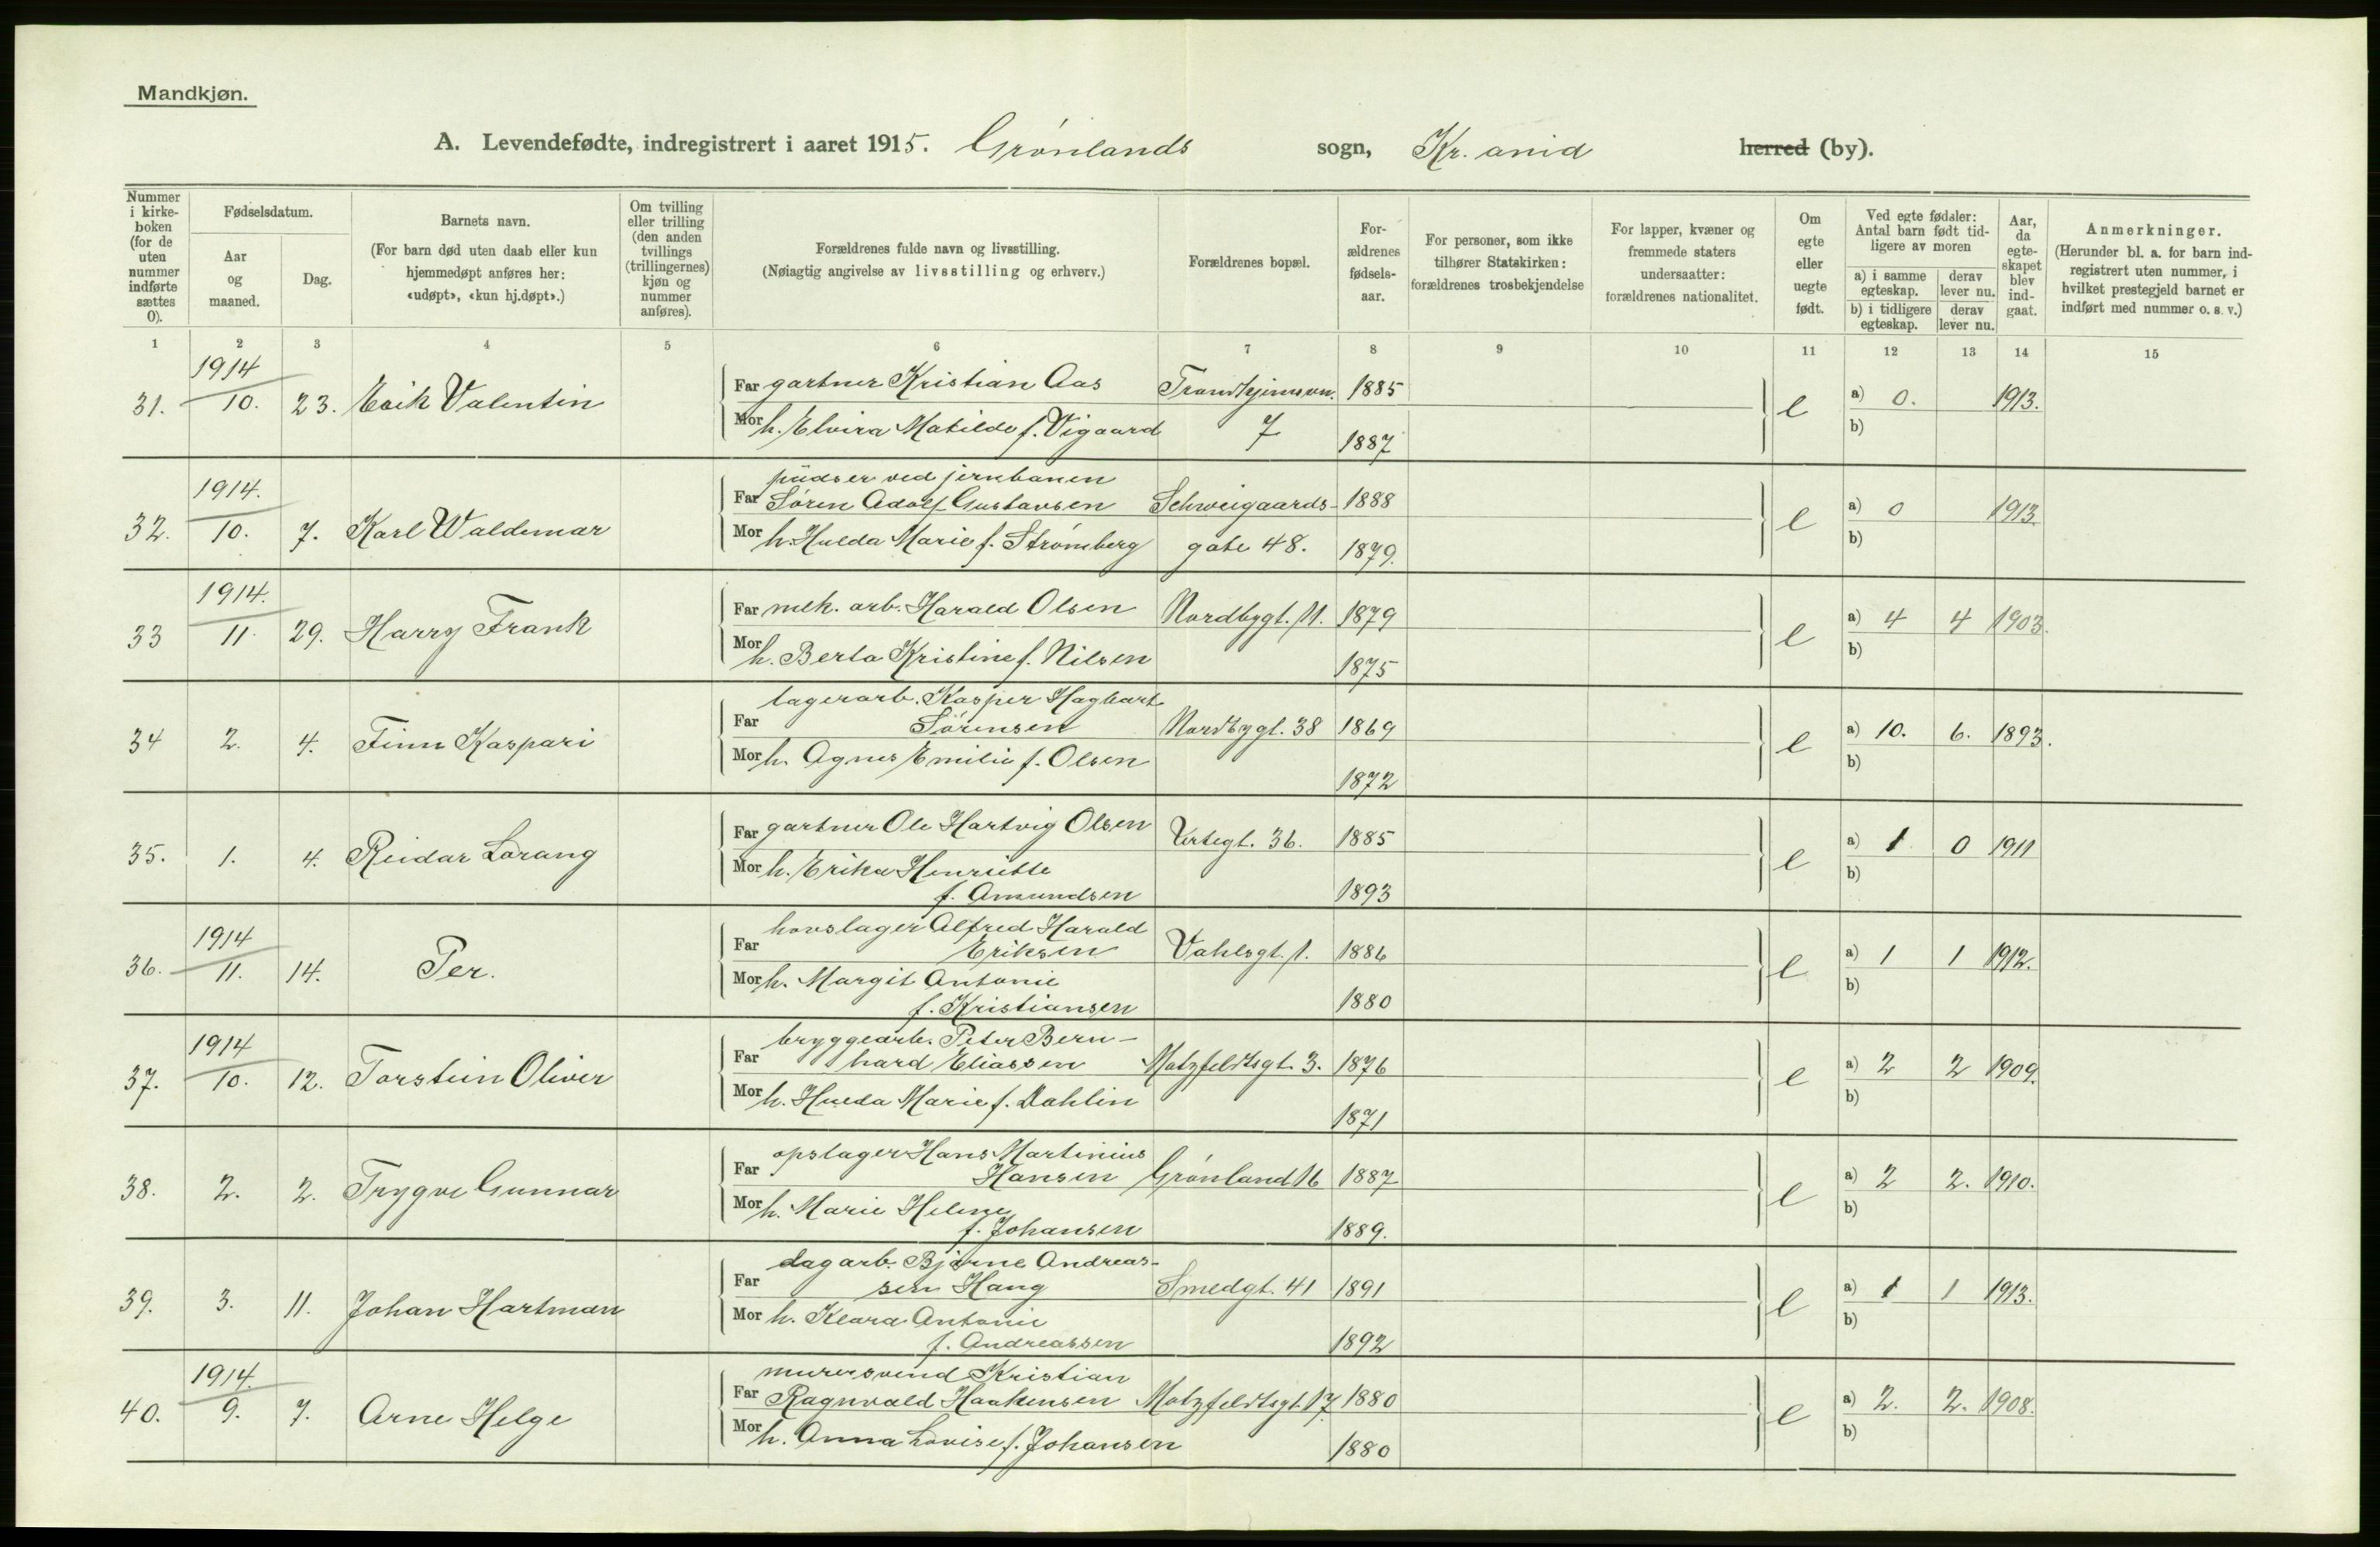 Mandkjøn.
A. Levendefødte, indregistrert i aaret 1915. Grønlands sogn, Kr.ania herred (by).
Nummer i kirke-boken (for de uten nummer indførte sættes 0).
Fødselsdatum.
Aar og maaned.
Dag.
Barnets navn.
(For barn død uten daab eller kun hjemmedøpt anføres her: «udøpt», «kun hj.døpt».)
Om tvilling eller trilling (den anden tvillings (trillingernes) kjøn og nummer anføres).
Forældrenes fulde navn og livsstilling.
(Nøiagtig angivelse av livsstilling og erhverv.)
Forældrenes bopæl.
For-ældrenes fødsels-aar.
For personer, som ikke tilhører Statskirken: forældrenes trosbekjendelse
For lapper, kvæner og fremmede staters undersaatter: forældrenes nationalitet.
Om egte eller uegte født.
Ved egte fødsler: Antal barn født tid-ligere av moren
a) i samme egteskap. derav lever nu.
b) i tidligere egteskap. derav lever nu.
Aar, da egte-skapet blev ind-gaat.
Anmerkninger.
(Herunder bl. a. for barn ind-registrert uten nummer, i hvilket prestegjeld barnet er indført med nummer o. s. v.)
1 2 3 4 5 6 7 8 9 10 11 12 13 14 15
1914
31. 10. 23. Erik Valentin Far gartner Kristian Aas Trondhjemsvn. 1885 e a) 0. 1913.
Mor h. Elvira Matilde f. Vigaard 7 1887 b)
1914. pudser ved jernbanen
32. 10. 7. Karl Waldemar Far Søren Adolf Gustavsen Schweigaards- 1888 e a) 0 1913.
Mor h. Hulda Marie f. Strømberg gate 48. 1879. b)
1914.
33 11. 29. Harry Frank Far mek. arb. Harald Olsen Nordbygt. 11. 1879 e a) 4 4 1903.
Mor h. Berta Kristine f. Nilsen 1875 b)
lagerarb. Kasper Hagbart
34 2. 4. Finn Kaspari Far Sörensen Nordbygt. 38 1869 e a) 10. 6. 1893.
Mor h. Agnes Emilie f. Olsen 1872 b)
35. 1. 4. Reidar Lorang Far gartner Ole Hartvig Olsen Urtegt. 36. 1885 e a) 1 0 1911
Mor h. Erika Henriette b)
f. Amundsen 1893
1914 hovslager Alfred Harald
36. 11. 14. Per. Far Eriksen Vahlsgt. 1. 1886 e a) 1 1 1912.
Mor h. Margit Antonie b)
f. Kristiansen 1880
1914 bryggearb. Peter Bern-
37. 10. 12. Torstein Oliver Far hard Eliassen Motzfeldtsgt. 3. 1876 e a) 2 2 1909.
Mor h. Hulda Marie f. Dahlin 1871 b)
opslager Hans Martinius
38. 2. 2. Trygve Gunnar Far Hansen Grønland 16 1887 e a) 2 2. 1910.
Mor h. Marie Helene b)
f. Johansen 1889.
dagarb. Bjarne Andreas-
39. 3. 11. Johan Hartman Far sen Haug Smedgt. 41 1891 e a) 1 1 1913.
Mor h. Klara Antonie b)
f. Andreassen 1892
1914. murersvend Kristian
40. 9. 7. Arne Helge Far Ragnvald Haakensen Motzfeldtsgt. 17. 1880 e a) 2. 2. 1908.
Mor h. Anna Lovise f. Johansen 1880 b)